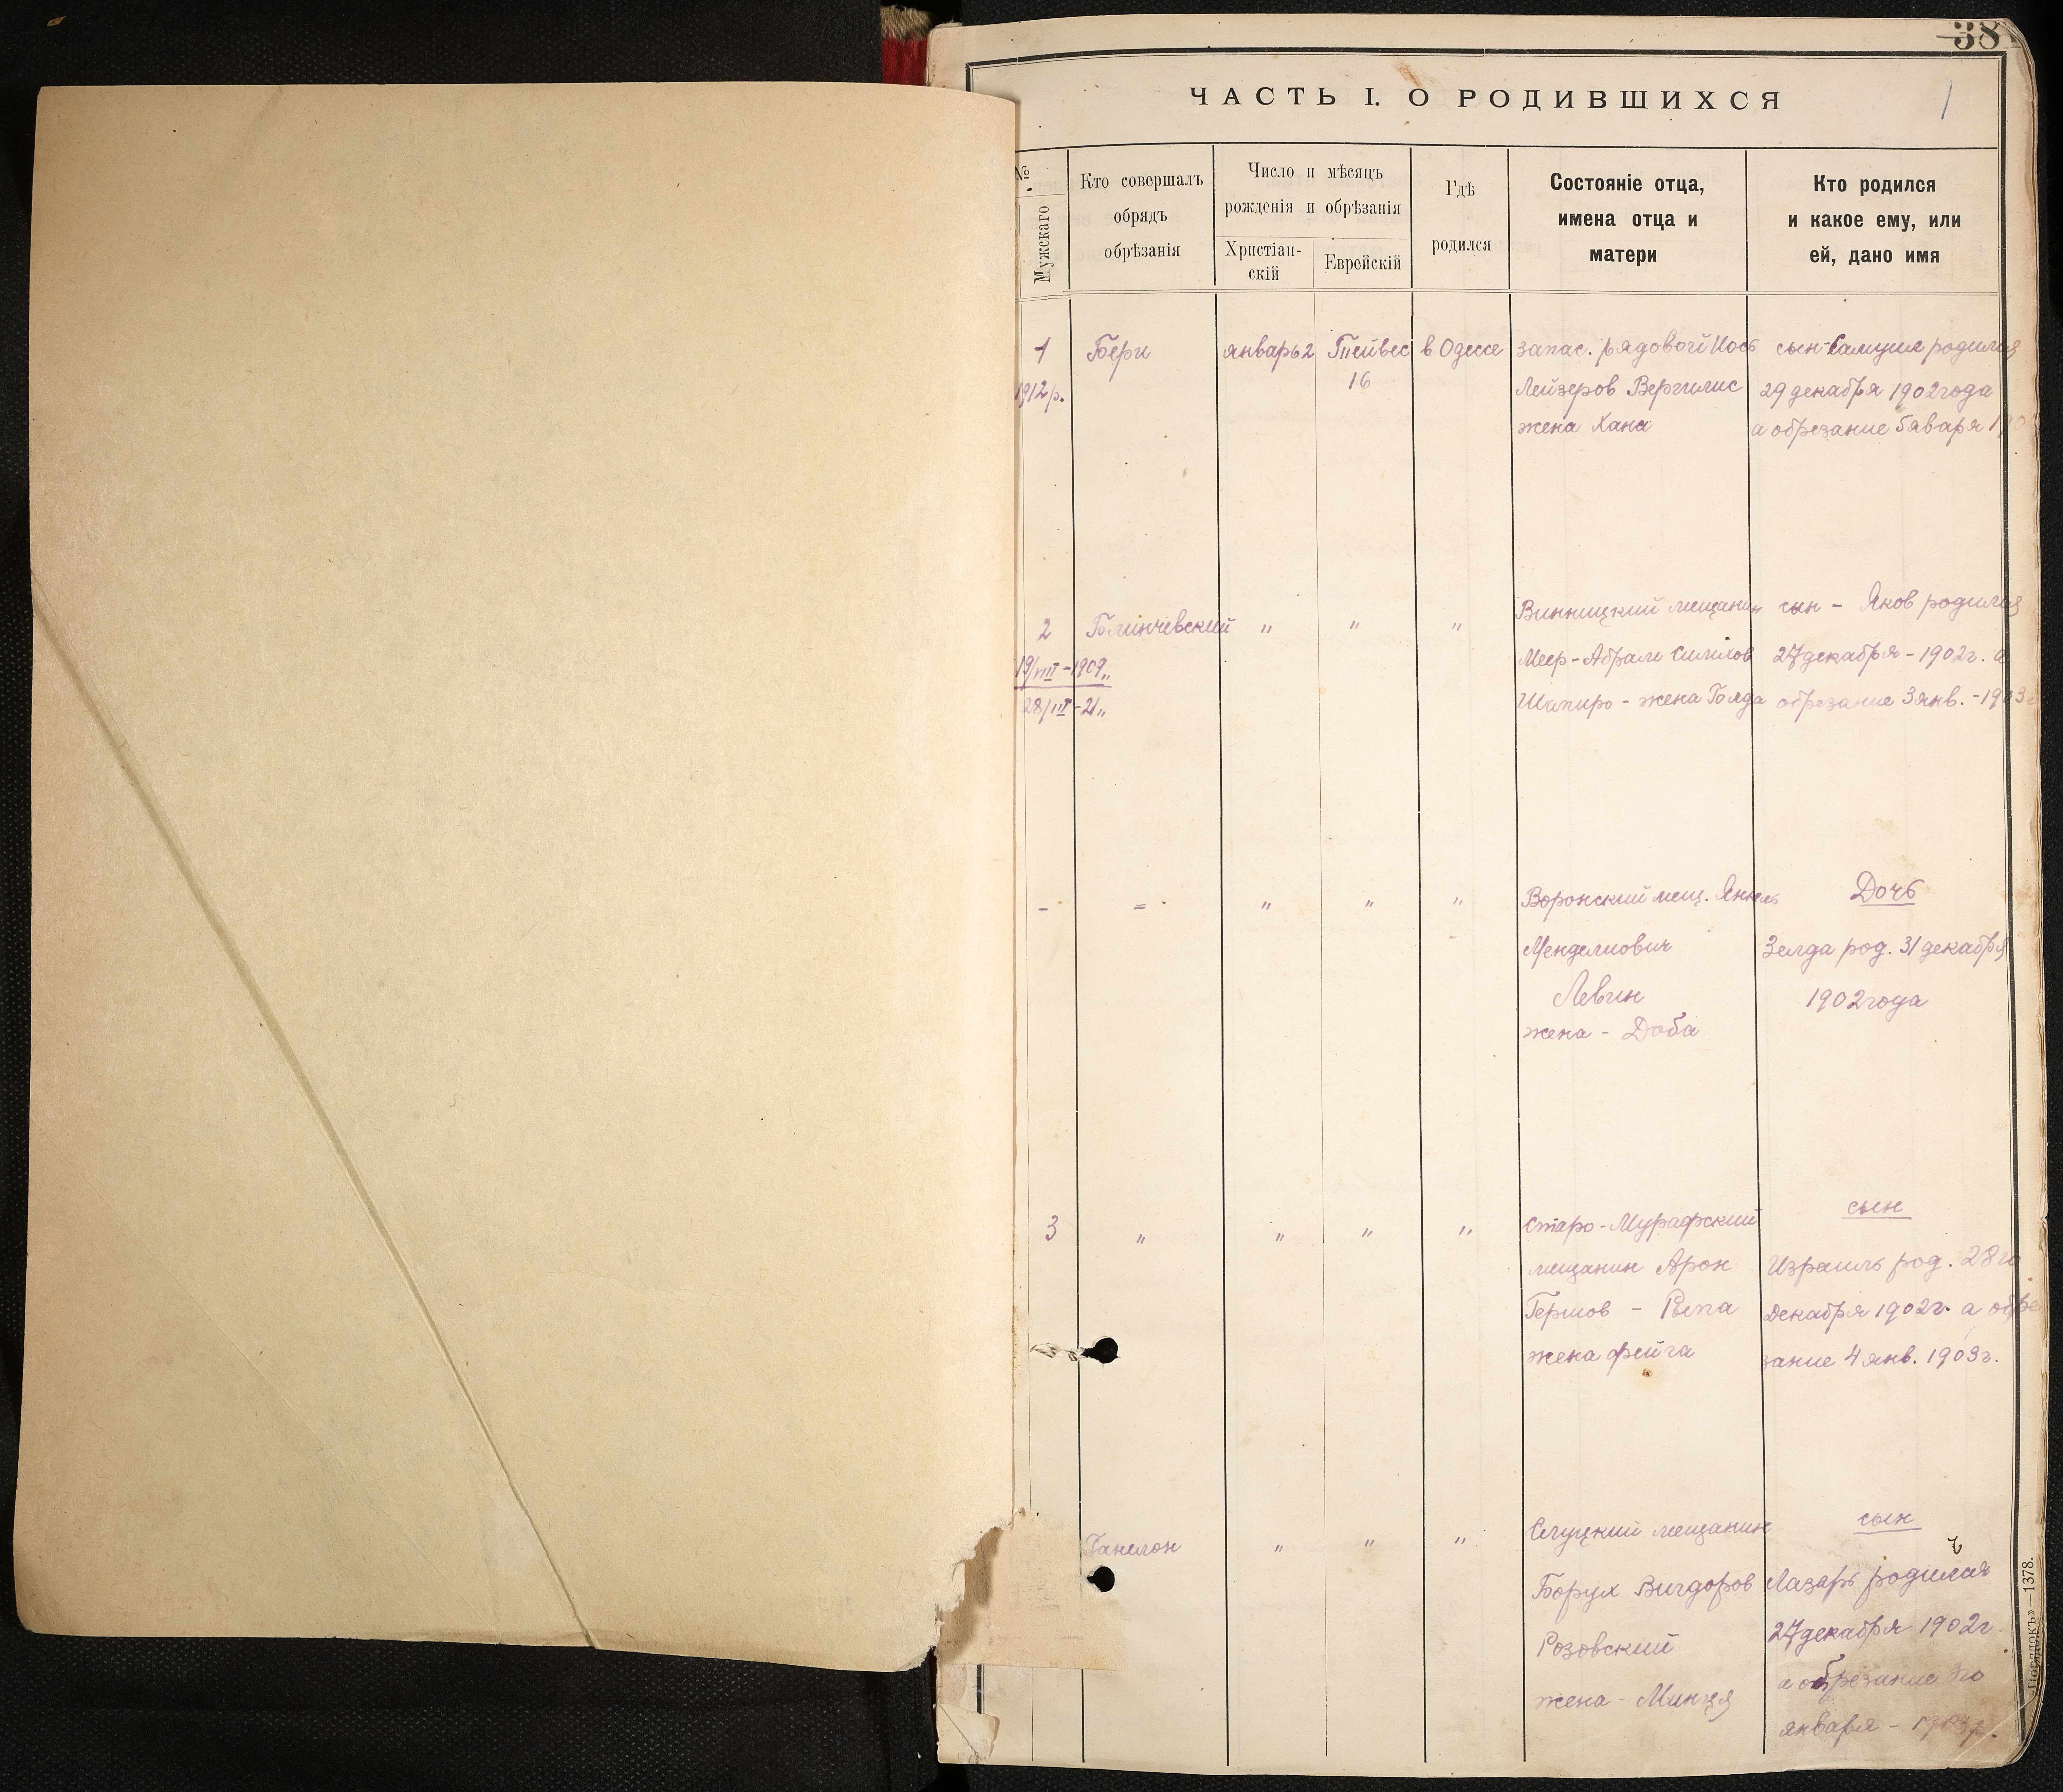 38
1
ЧАСТЬ I. О РОДИВШИХСЯ
№
Мужскаго
Кто совершалъ
обрядъ
обрѣзанія
Число и мѣсяцъ
рожденія и обрѣзанія
Христіан-
скій
Еврейскій
Гдѣ
родился
Состояніе отца,
имена отца и
матери
Кто родился
и какое ему, или
ей, дано имя
1
1912р.
Бери
январь 2
16
в Одессе
запас. рядовой Иось
Лейзеров Вергилис
жена Хана
сын-Самуил родился
29 декабря 1902 года
а обрезание 5 аваря
2
19/VIII-1909,,
28/III-21,,
Блинчевский
"
"
"
Винницкий мещанин
Меер-Абрам
Шапиро - жена Голда
сын - Яков родился
27 декабря - 1902г. а
обрезание 3 янв. - 1903г
-
=
"
"
"
Воронский мещ. Янкель
Менделиович
Левин
жена - Доба
Дочь
Зелда род. 31 декабря
1902 года
3
"
"
"
"
Старо-Мурафский
мещанин Арон
Гершов - Репа
жена фейга
сын
Израиль род. 28го
Декабря 1902г. а обре
зание 4 янв. 1903г.
"
"
"
Слуцкий мещанин
Борух Вигдоров
Розовский
жена - Минця
сын
Лазарь родился
27 декабря 1902г.
а обрезание 3го
января -
«Порядокъ»—1378.